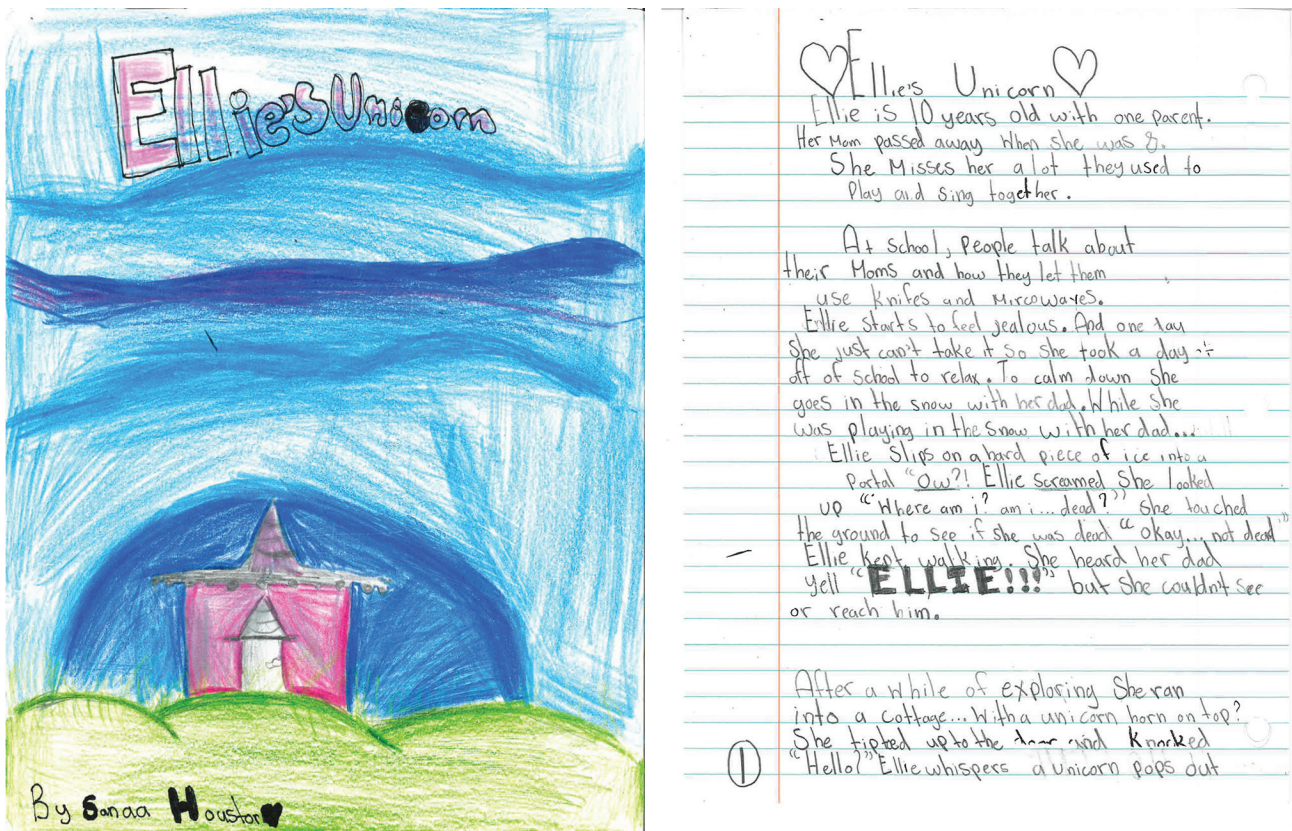 Ellie's Unicorn
By Sanaa Houston
Ellie's Unicorn
Ellie is 10 years old with one parent.
Her Mom passed away When she was 8.
She Misses her a lot they used to
Play and Sing together.
At school, People talk about
their Moms and how they let them
use Knifes and Mircowaves.
Ellie starts to feel jealous. And one day
She just can't take it so she took a day
off of school to relax. To calm down she
goes in the snow with her dad. While she
was playing in the snow with her dad...
Ellie Slips on a hard piece of ice into a
Portal "Ow?! Ellie screamed She looked
up "Where am i? am i... dead?" She touched
the ground to see if she was dead "okay... not dead"
Ellie kept walking. She heard her dad
yell "ELLIE!!!" but she couldn't see
or reach him.
After a while of exploring She ran
into a cottage... With a unicorn horn on top?
She tipted up to the door and Knocked
"Hello?" Ellie whispers a Unicorn pops out
1